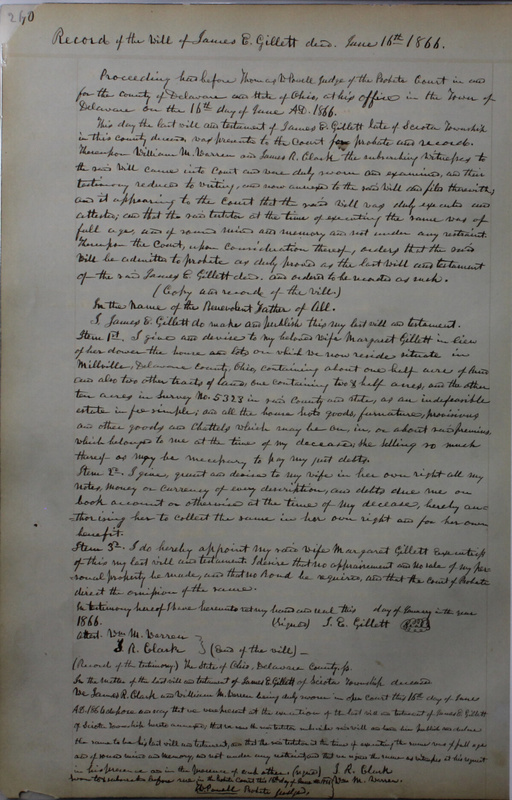 240
Record of the will of James E. Gillett decd. June 16th 1866.
Proceeding had before Thomas W Powell Judge of the Probate Court in and
for the county of Delaware and State of Ohio, at his office in the Town of
Delaware on the 16th day of June A.D. 1866.
This day the last will and testament of James E. Gillett late of Scioto Township
in this county deceased, was presented to the Court for probate and record.
Thereupon William M. Warren and James R. Clark the subscribing witnesses to
the said will came into Court and were duly sworn and examined, and their
testimony reduced to writing, and now annexed to the said will and filed therewith,
and it appearing to the Court that the said will was duly executed and
attested; and that the said testator at the time of executing the same was of
full age, and of sound mind and memory, and not under any restraint.
Thereupon the Court, upon consideration thereof, orders that the said
will be admitted to probate as duly proved as the last will and testament
of the said James E. Gillett decd. and ordered to be recorded as such.
(Copy and record of the will.)
In the name of the Benevolent Father of All.
I, James E. Gillett do make and publish this my last will and testament.
Item 1st. I give and devise to my beloved wife Margaret Gillett in lieu
of her dower the house and lots on which we now reside situate in
Millville, Delaware County, Ohio, containing about one half acre of land
and also two other tracts of land, one containing two & half acres, and the other
ten acres in Survey No. 5323 in said County and State, as an indefeasible
estate in fee simple; and all the house hold goods, furniture, provisions
and other goods and chattels which may be on, in, or about said premises,
which belongs to me at the time of my decease, she selling so much
thereof as may be necessary to pay my just debts.
Item 2d. I give, grant and devise to my wife in her own right all my
notes, money or currency of every description, and debts due me on
book account or otherwise at the time of my decease, hereby au-
thorizing her to collect the same in her own right and for her own
benefit.
Item 3d. I do hereby appoint my said wife Margaret Gillett Executrix
of this my last will and testament. I desire that no appraisement and no sale of my per-
sonal property be made, and that no Bond be required, and that the Court of Probate
direct the omission of the same.
In testimony hereof I have hereunto set my hand and seal this day of January in the year
1866. (Signed) J. E. Gillett
attest. Wm M. Warren
J. R. Clark (End of the will)
(Record of the testimony) The State of Ohio, Delaware County, ss.
In the matter of the last will and testament of James E. Gillett of Scioto Township deceased
We James R. Clark and William M. Warren being duly sworn in open Court this 16th day of June
A.D. 1866 depose and say that we were present at the execution of the last will and testament of James E. Gillett
of Scioto township hereto annexed; that we saw the said testator subscribe said will and heard him publish and declare
the same to be his last will and testament, and that the said testator at the time of executing the same was of full age
and of sound mind and memory, and not under any restraint and that we signed the same as witnesses at his request
in his presence and in the presence of each other. (signed) J. R. Clark
sworn to & subscribed before me in the probate court this 16th day of June 1866 Wm M. Warren.
TW Powell Probate Judge